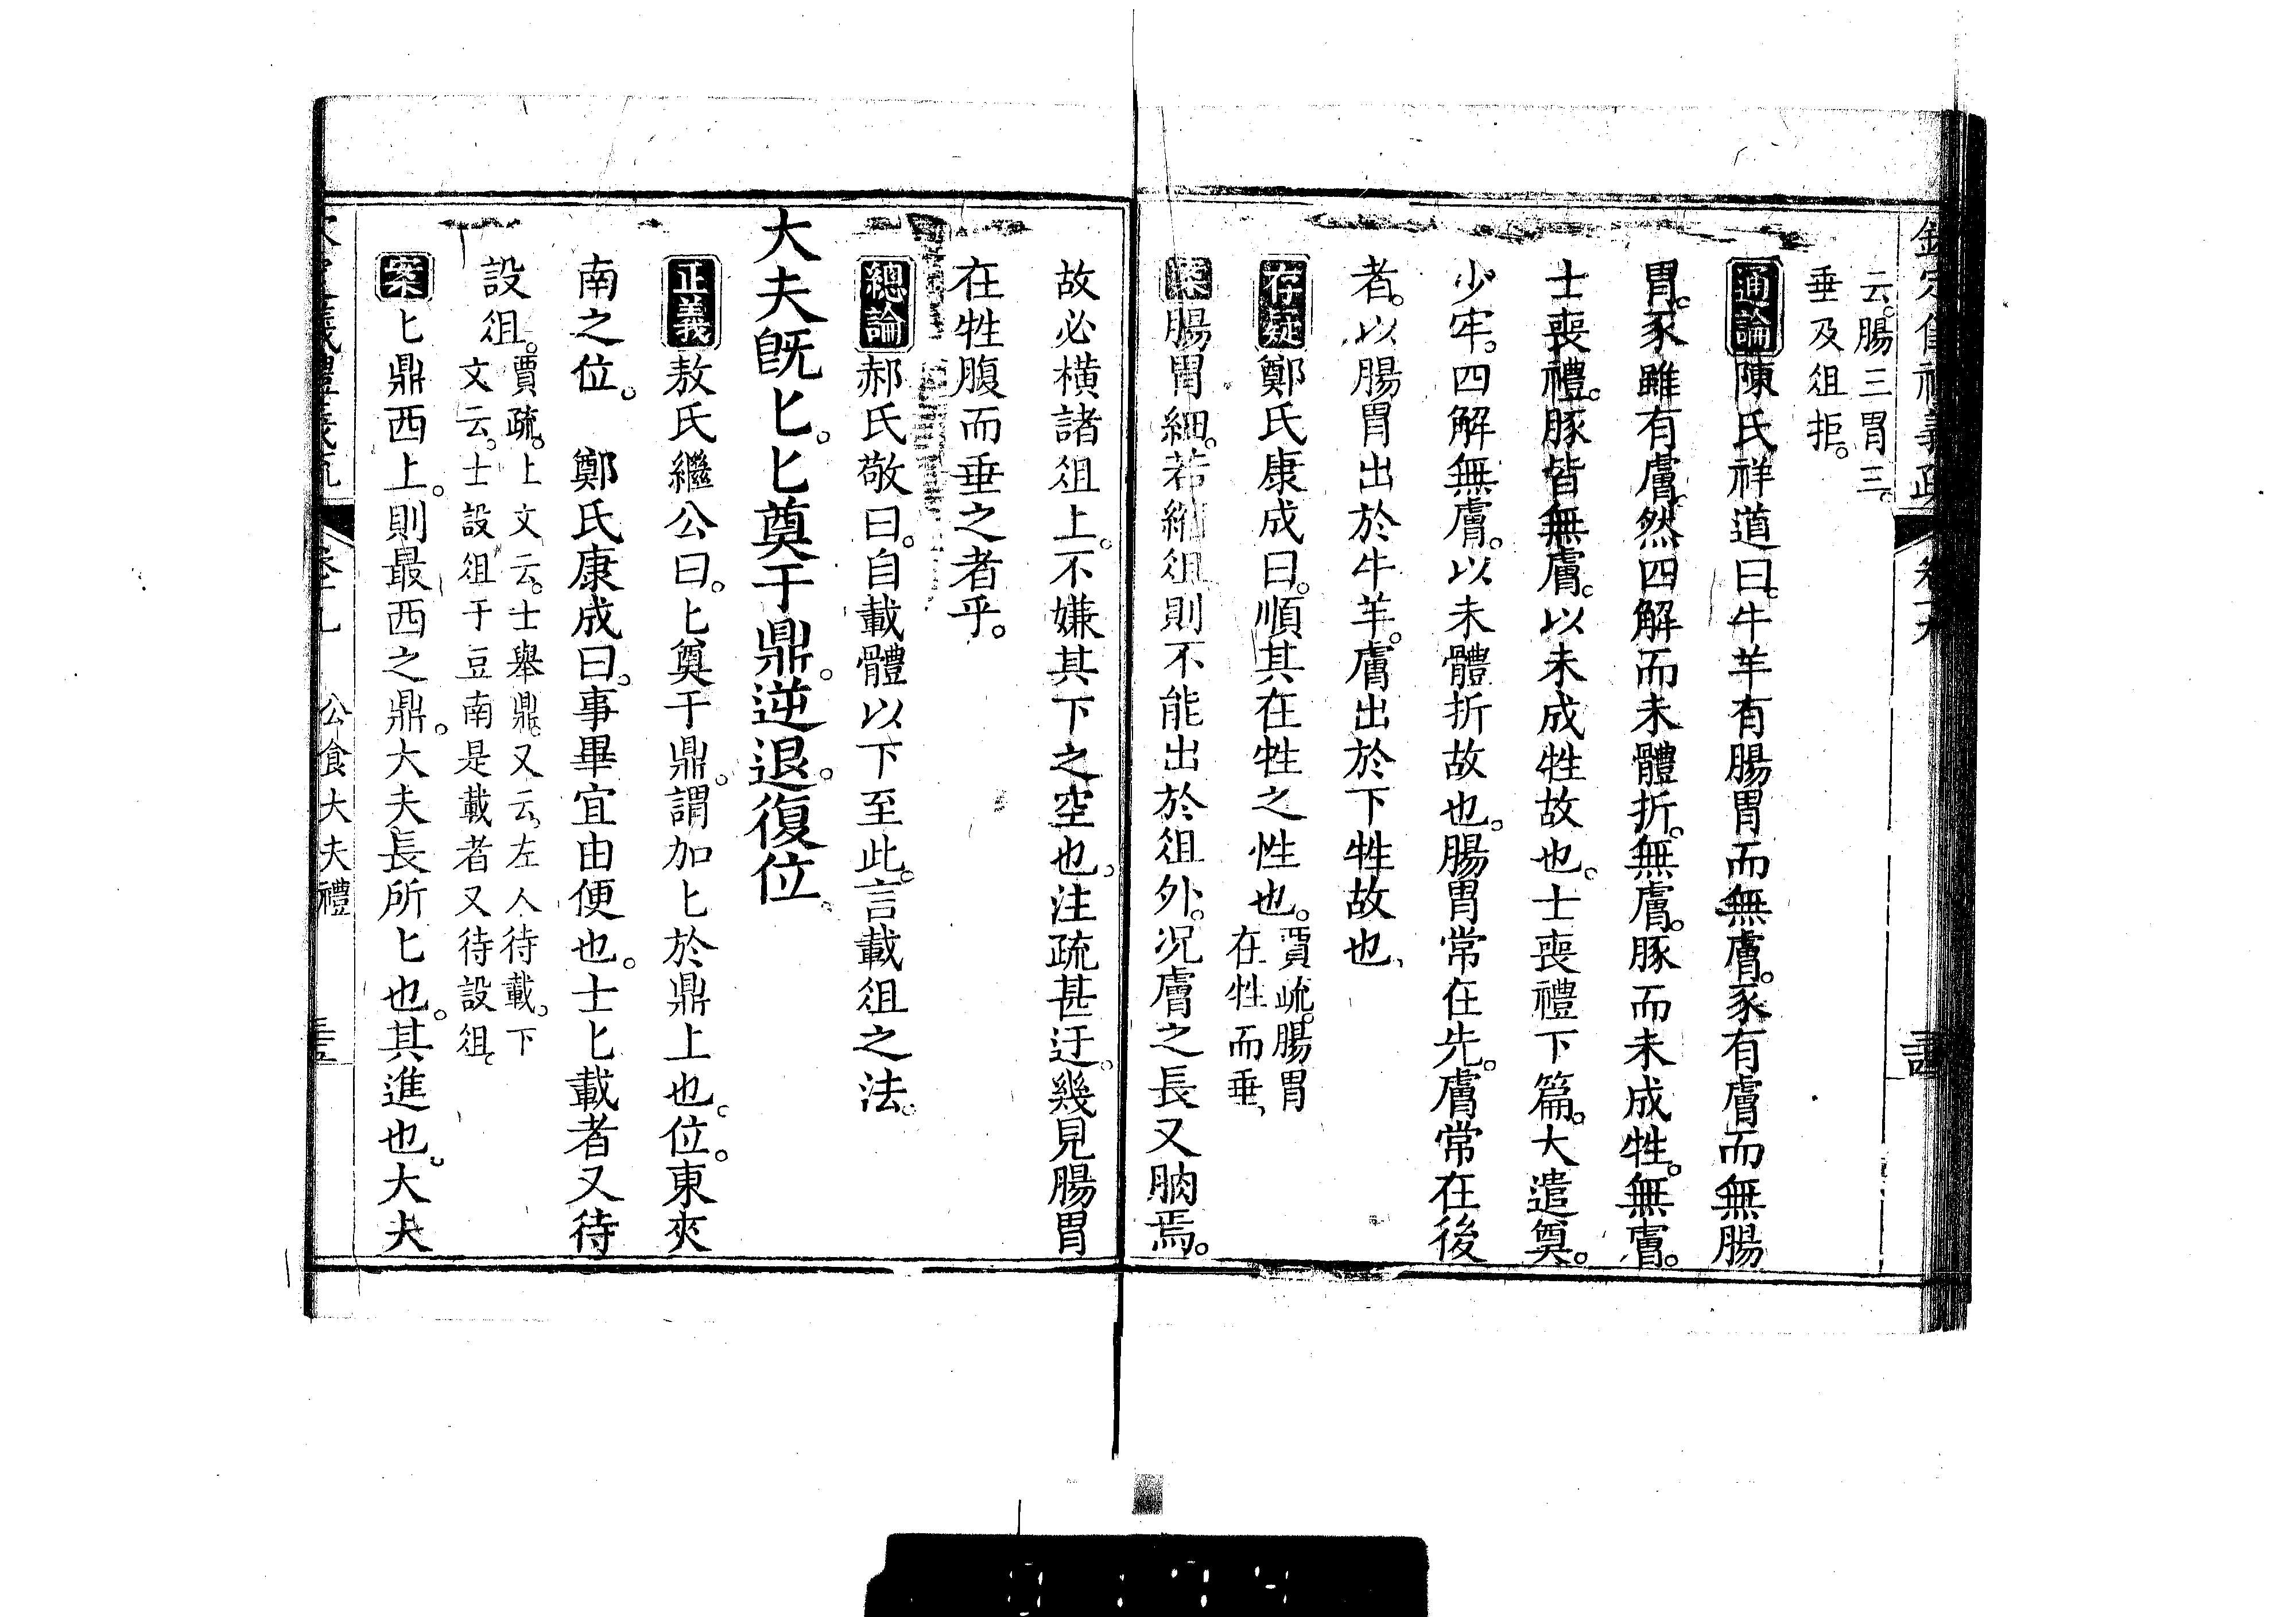 云。腸三胃三。
垂及俎拒。
通論陳氏祥道曰。牛羊有腸胃而無膚。豕有膚而無腸
胃。豕雖有膚。然四解而未體折。無膚。豚而未成牲。無膚。
士喪禮。豚皆無膚。以未成牲故也。士喪禮下篇。大遣奠。
少牢。四解無膚。以未體折故也。腸胃常在先。膚常在後
者。以腸胃出於牛羊。膚出於下牲故也、
存疑鄭氏康成曰。順其在牲之性也。賈疏。腸胃
在牲而垂、
案腸胃細。若縮俎則不能出於俎外。况膚之長又胹焉。
故必橫諸俎上。不嫌其下之空也。注疏甚迂。幾見腸胃
在牲腹而垂之者乎。
總論郝氏敬曰。自載體以下至此。言載俎之法。
大夫旣匕。匕奠于鼎。逆退。復位。
正義敖氏繼公曰。匕奠于鼎。謂加匕於鼎上也。位。東夾
南之位。 鄭氏康成曰。事畢宜由便也。士匕載者又待
設俎。賈疏。上文云。士舉鼎。又云。左人待載。下
文云。士設俎于豆南是載者又待設俎。
案匕鼎西上。則最西之鼎。大夫長所匕也。其進也。大夫
公食大夫禮